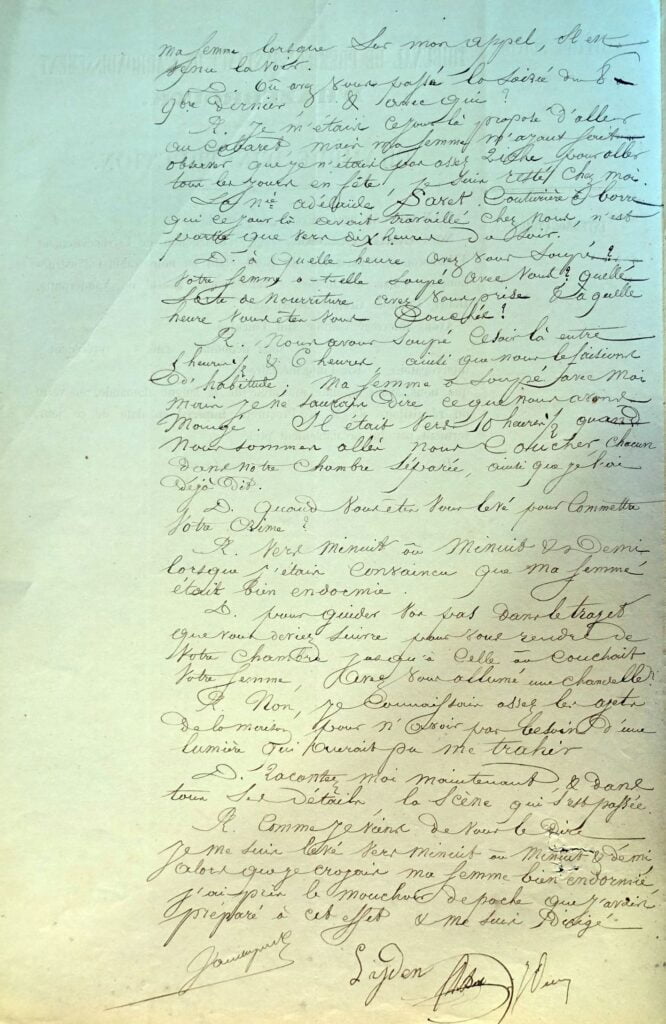 ma femme lorsque sur mon appel, il est
venu la voir.
D. Où avez vous passé la soirée du 8
9bre dernier & avec qui?
R. Je m'étais ce jour là proposé d'aller
au Cabaret, mais ma femme m'ayant fait
observer que je n'étais pas assez riche pour aller
tous les jours en fête, je suis resté chez moi.
La née adelaïde Saret Couturière à borre
qui ce jour là avait travaillé chez nous, n'est
partie que vers dix heures du soir.
D. à quelle heure avez vous soupé?
Votre femme a-t-elle soupé avec vous? quelle
sorte de nourriture avez vous prise & à quelle
heure vous êtes vous Couchés?
R. Nous avons soupé ce soir là entre
heures ½ & 6 heures ainsi que nous le faisions
D'habitude. Ma femme a soupé avec moi
mais je ne saurais dire ce que nous avons
Mangé. Il était vers 10 heures ½ quand
nous sommes allés nous Coucher, chacun
dans notre chambre séparée, ainsi que je l'ai
déjà dit.
D. quand vous êtes vous levé pour Commettre
votre Crime?
R. Vers minuit ou Minuit & Demi
lorsque j'étais Convaincu que ma femme
était bien endormie.
D. pour guider vos pas dans le trajet
que vous deviez suivre pour vous rendre de
votre chambre jusqu'à celle où couchait
votre femme, avez vous allumé une chandelle?
R. Non, je Connaissais assez les
de la maison pour n'avoir pas besoin d'une
lumière qui aurait pu me trahir
D. Racontez moi maintenant, & dans
tous ses détails la scène qui s'est passée.
R. Comme je viens de vous le Dire
je me suis levé vers minuit ou Minuit & demi
alors que je croyais ma femme bien endormie
j'ai pris le mouchoir de poche que j'avais
préparé à cet effet & me suis Dirigé
Lijden